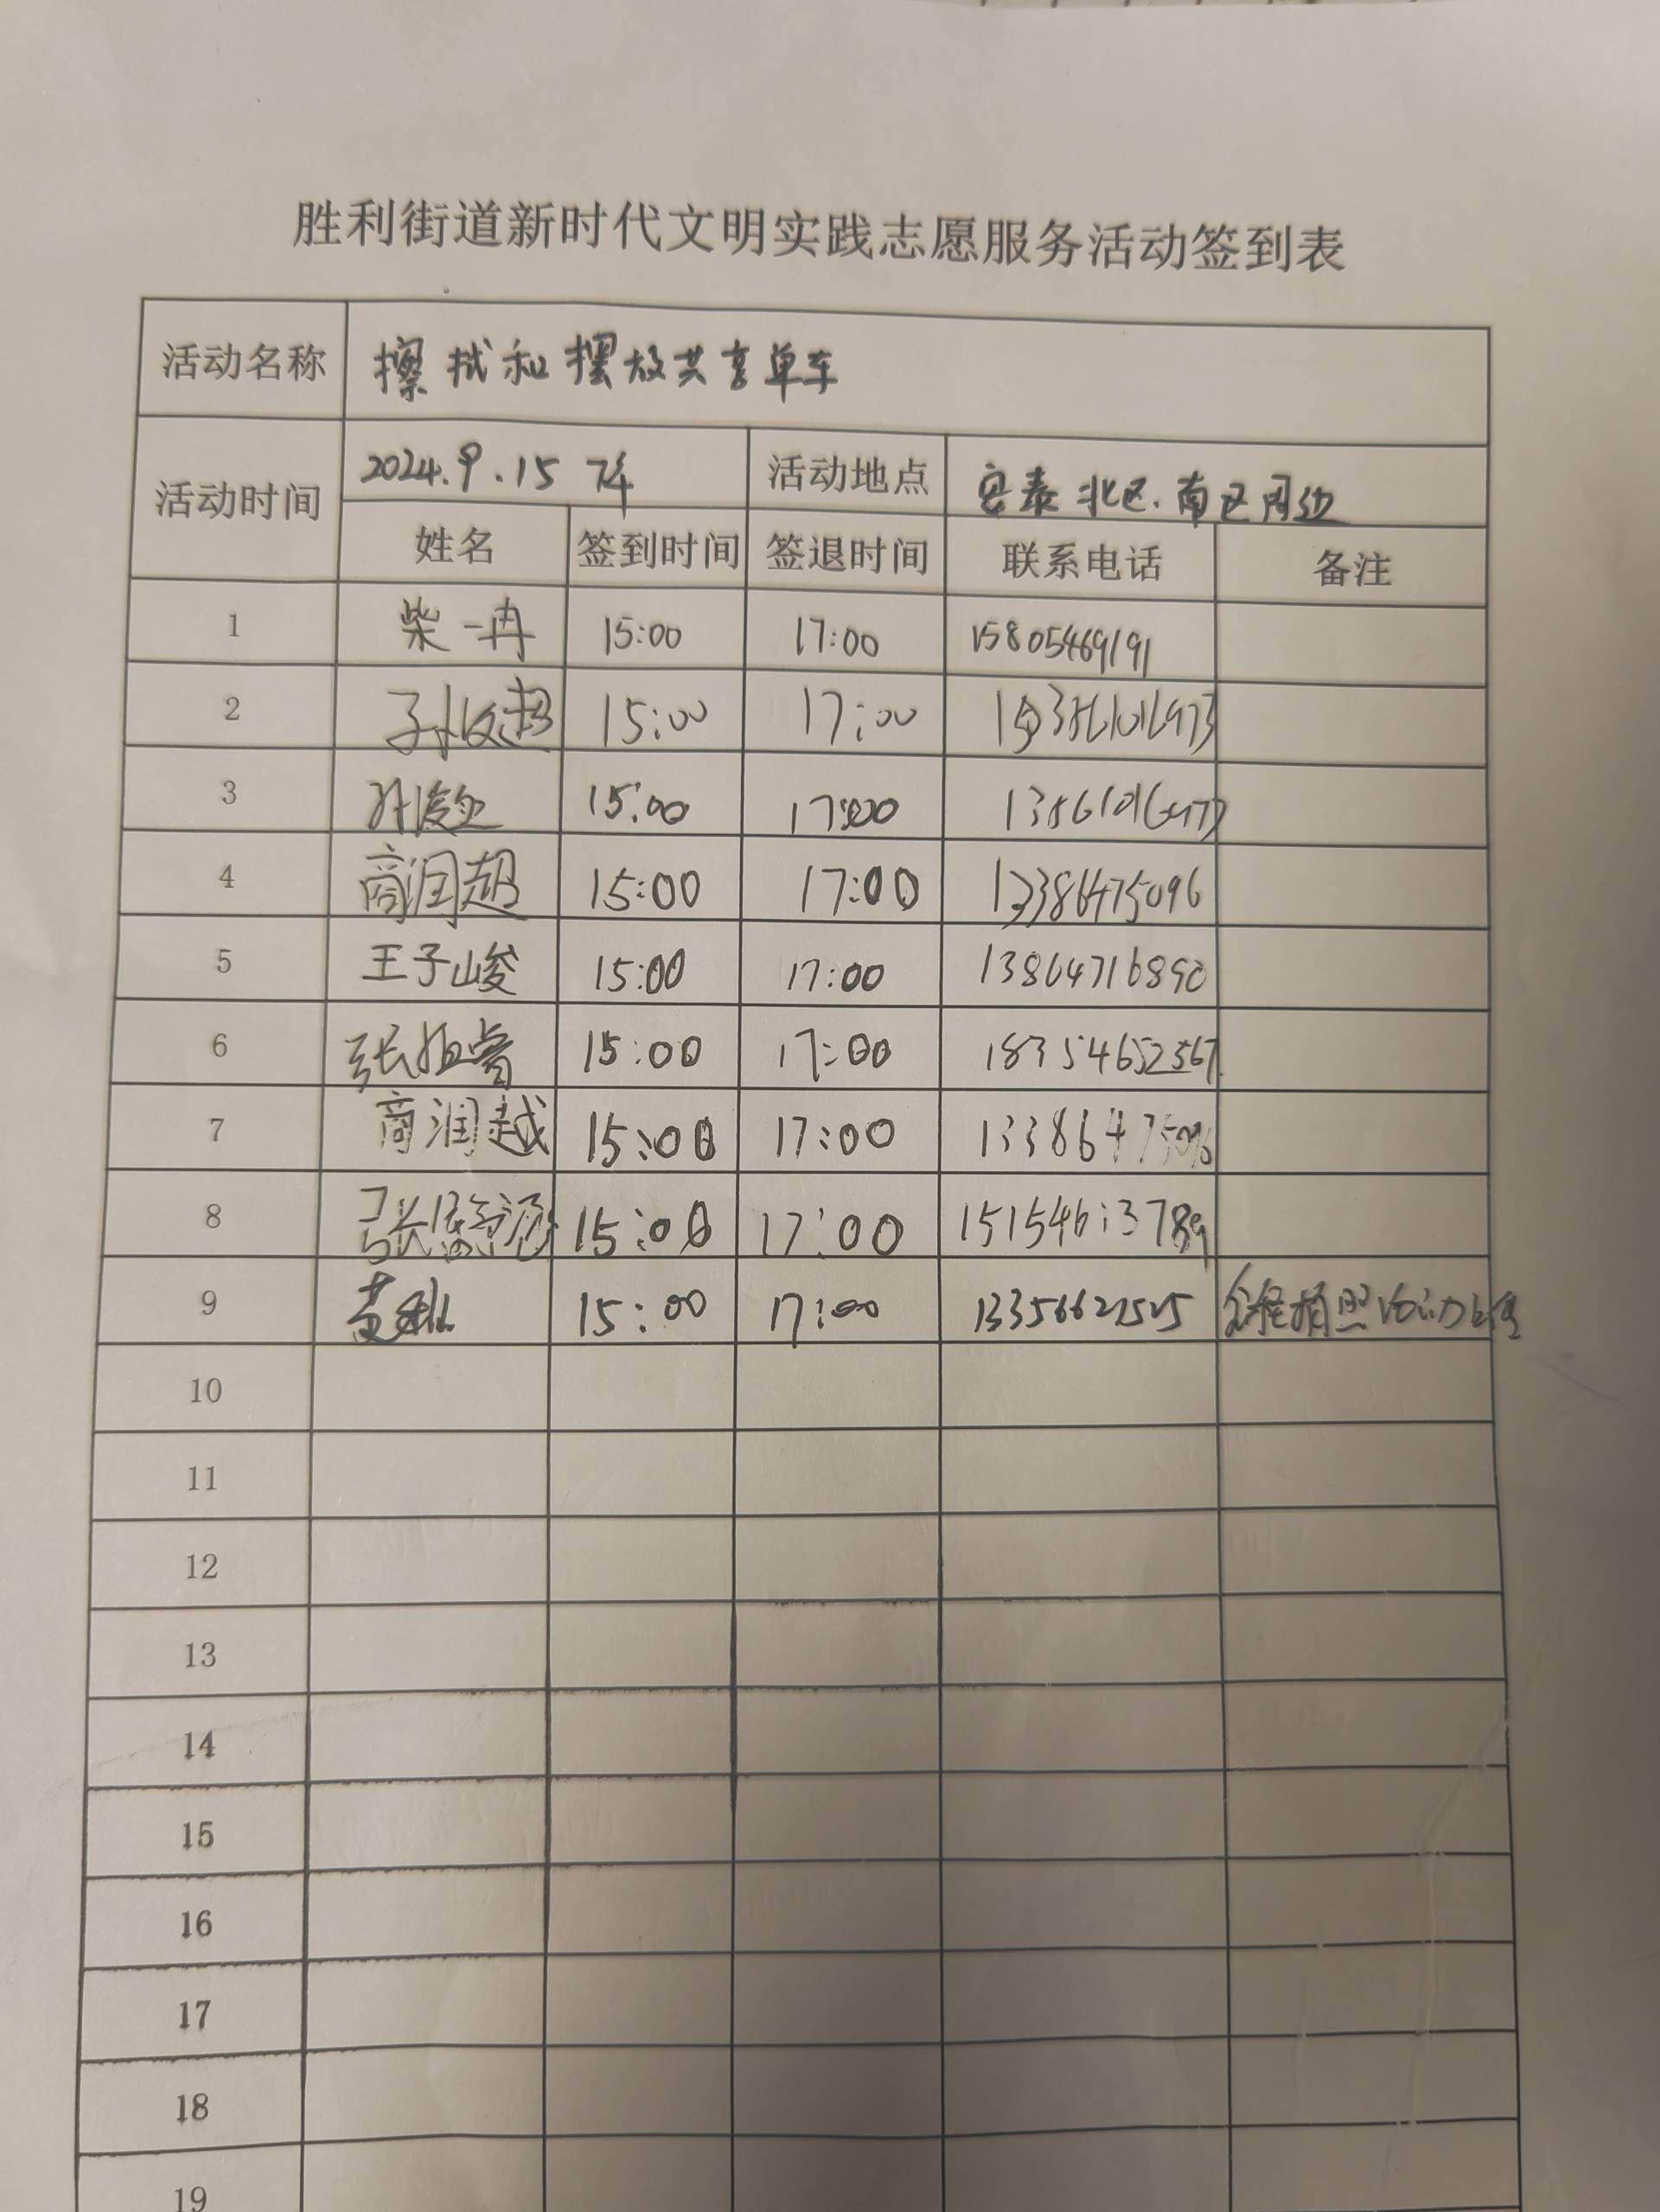 胜利街道新时代文明实践志愿服务活动签到表
活动名称 擦拭和摆放共享单车
活动时间 2024.9.15 下午 活动地点 安泰北区.南区周边
姓名 签到时间 签退时间 联系电话 备注
1 柴一冉 15:00 17:00 15805469191
2 15:00 17:00
3 15:00 17:00
4 商润超 15:00 17:00 13386475096
5 王子峻 15:00 17:00 13864716890
6 15:00 17:00 18354652567
7 商润越 15:00 17:00 13386475096
8 15:00 17:00 15154613789
9 15:00 17:00
10
11
12
13
14
15
16
17
18
19